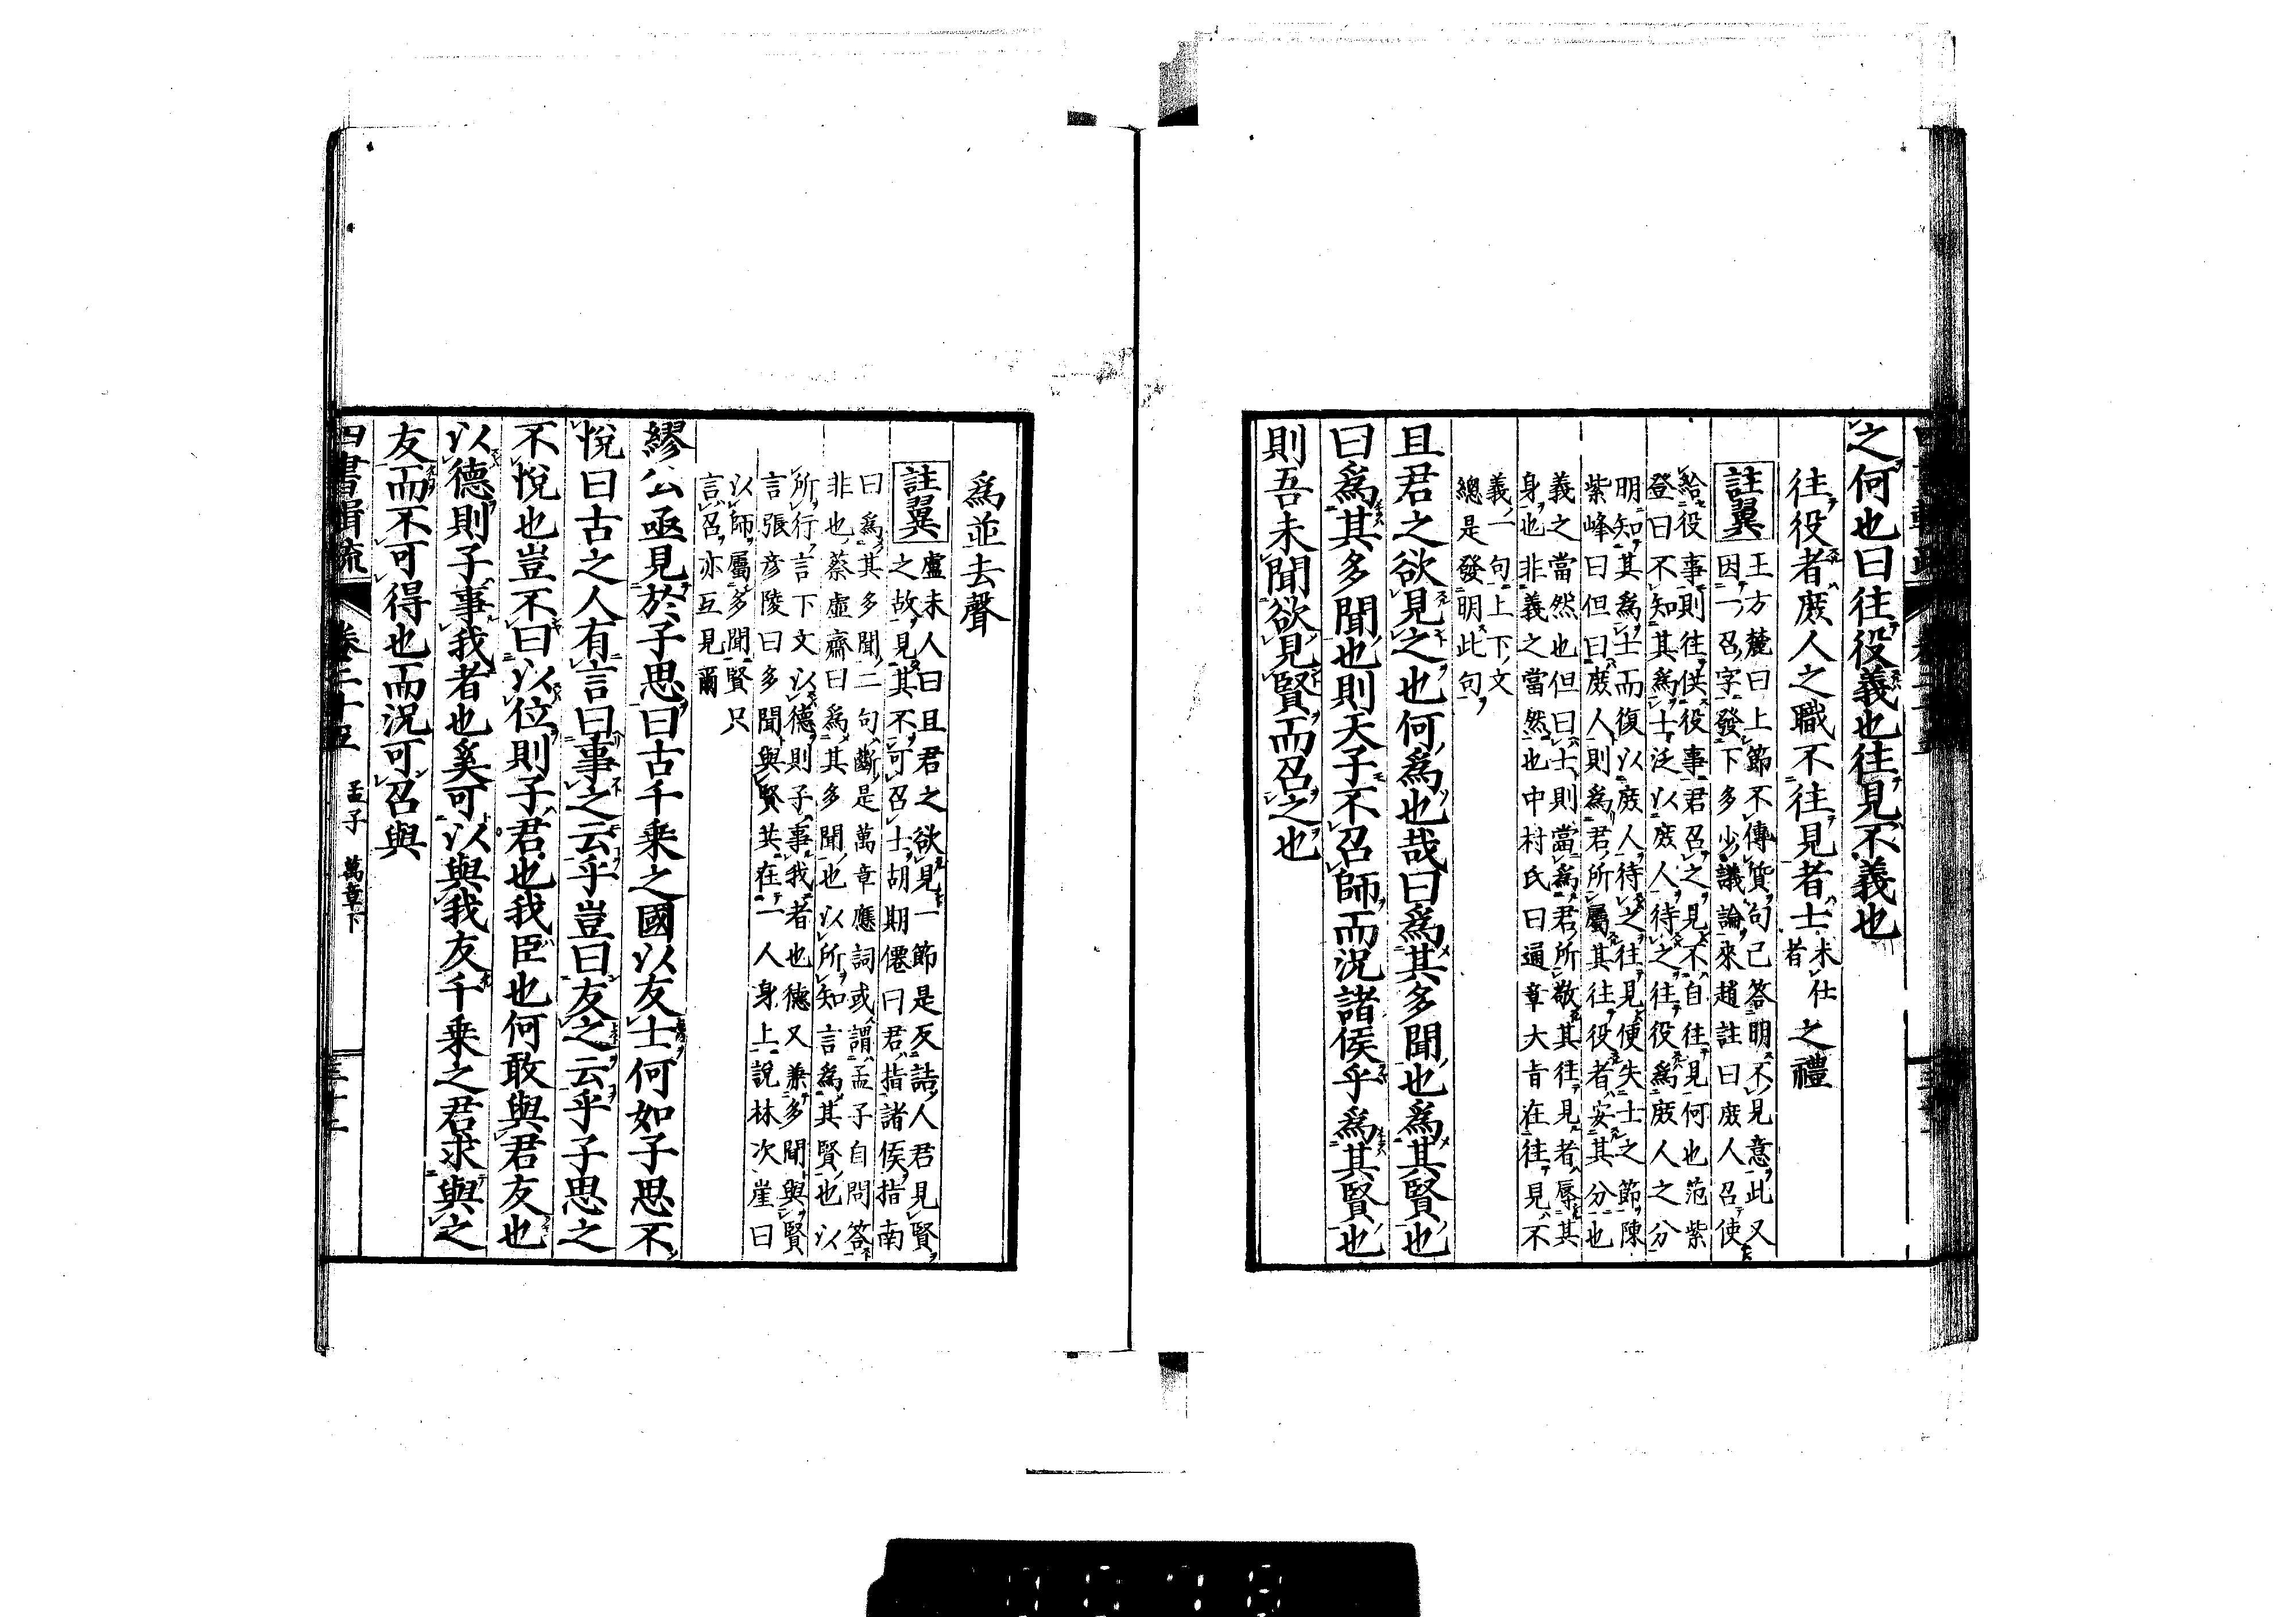 之何也曰往役義也往見不義也
往役者庻人之職不往見者士未仕者之禮
註翼王方麓曰上節不傳質句已答明不見意此又
因一召字發下多少議論來趙註曰庻人召使
給役事則往供役事君召之見不自往見何也范紫
登曰不知其為士泛以庻人待之往役為庻人之分
明知其為士而復以庻人待之往見便失士之節陳
紫峰曰但曰庻人則為君所屬其往役者安其分也
義之當然也但曰士則當為君所敬其往見者辱其
身也非義之當然也中村氏曰通章大旨在往見不
義一句上下文
總是發明此句
且君之欲見之也何為也哉曰為其多聞也為其賢也
曰為其多聞也則天子不召師而況諸侯乎為其賢也
則吾未聞欲見賢而召之也
為並去聲
註翼盧未人曰且君之欲見一節是反詰人君見賢
之故見其不可召士胡期僊曰君指諸侯指南
曰為其多聞二句斷是萬章應詞或謂孟子自問答
非也蔡虛齋曰為其多聞也以所知言為其賢也以
所行言下文以德則子事我者也德又兼多聞與賢
言張彦陵曰多聞與賢共在一人身上說林次崖曰
以師屬多聞賢只
言召亦互見爾
繆公亟見於子思曰古千乗之國以友士何如子思不
悅曰古之人有言曰事之云乎豈曰友之云乎子思之
不悅也豈不曰以位則子君也我臣也何敢與君友也
以德則子事我者也奚可以與我友千乗之君求與之
友而不可得也而況可召與
四書輯疏 卷二十五 孟子 萬章下 三十二